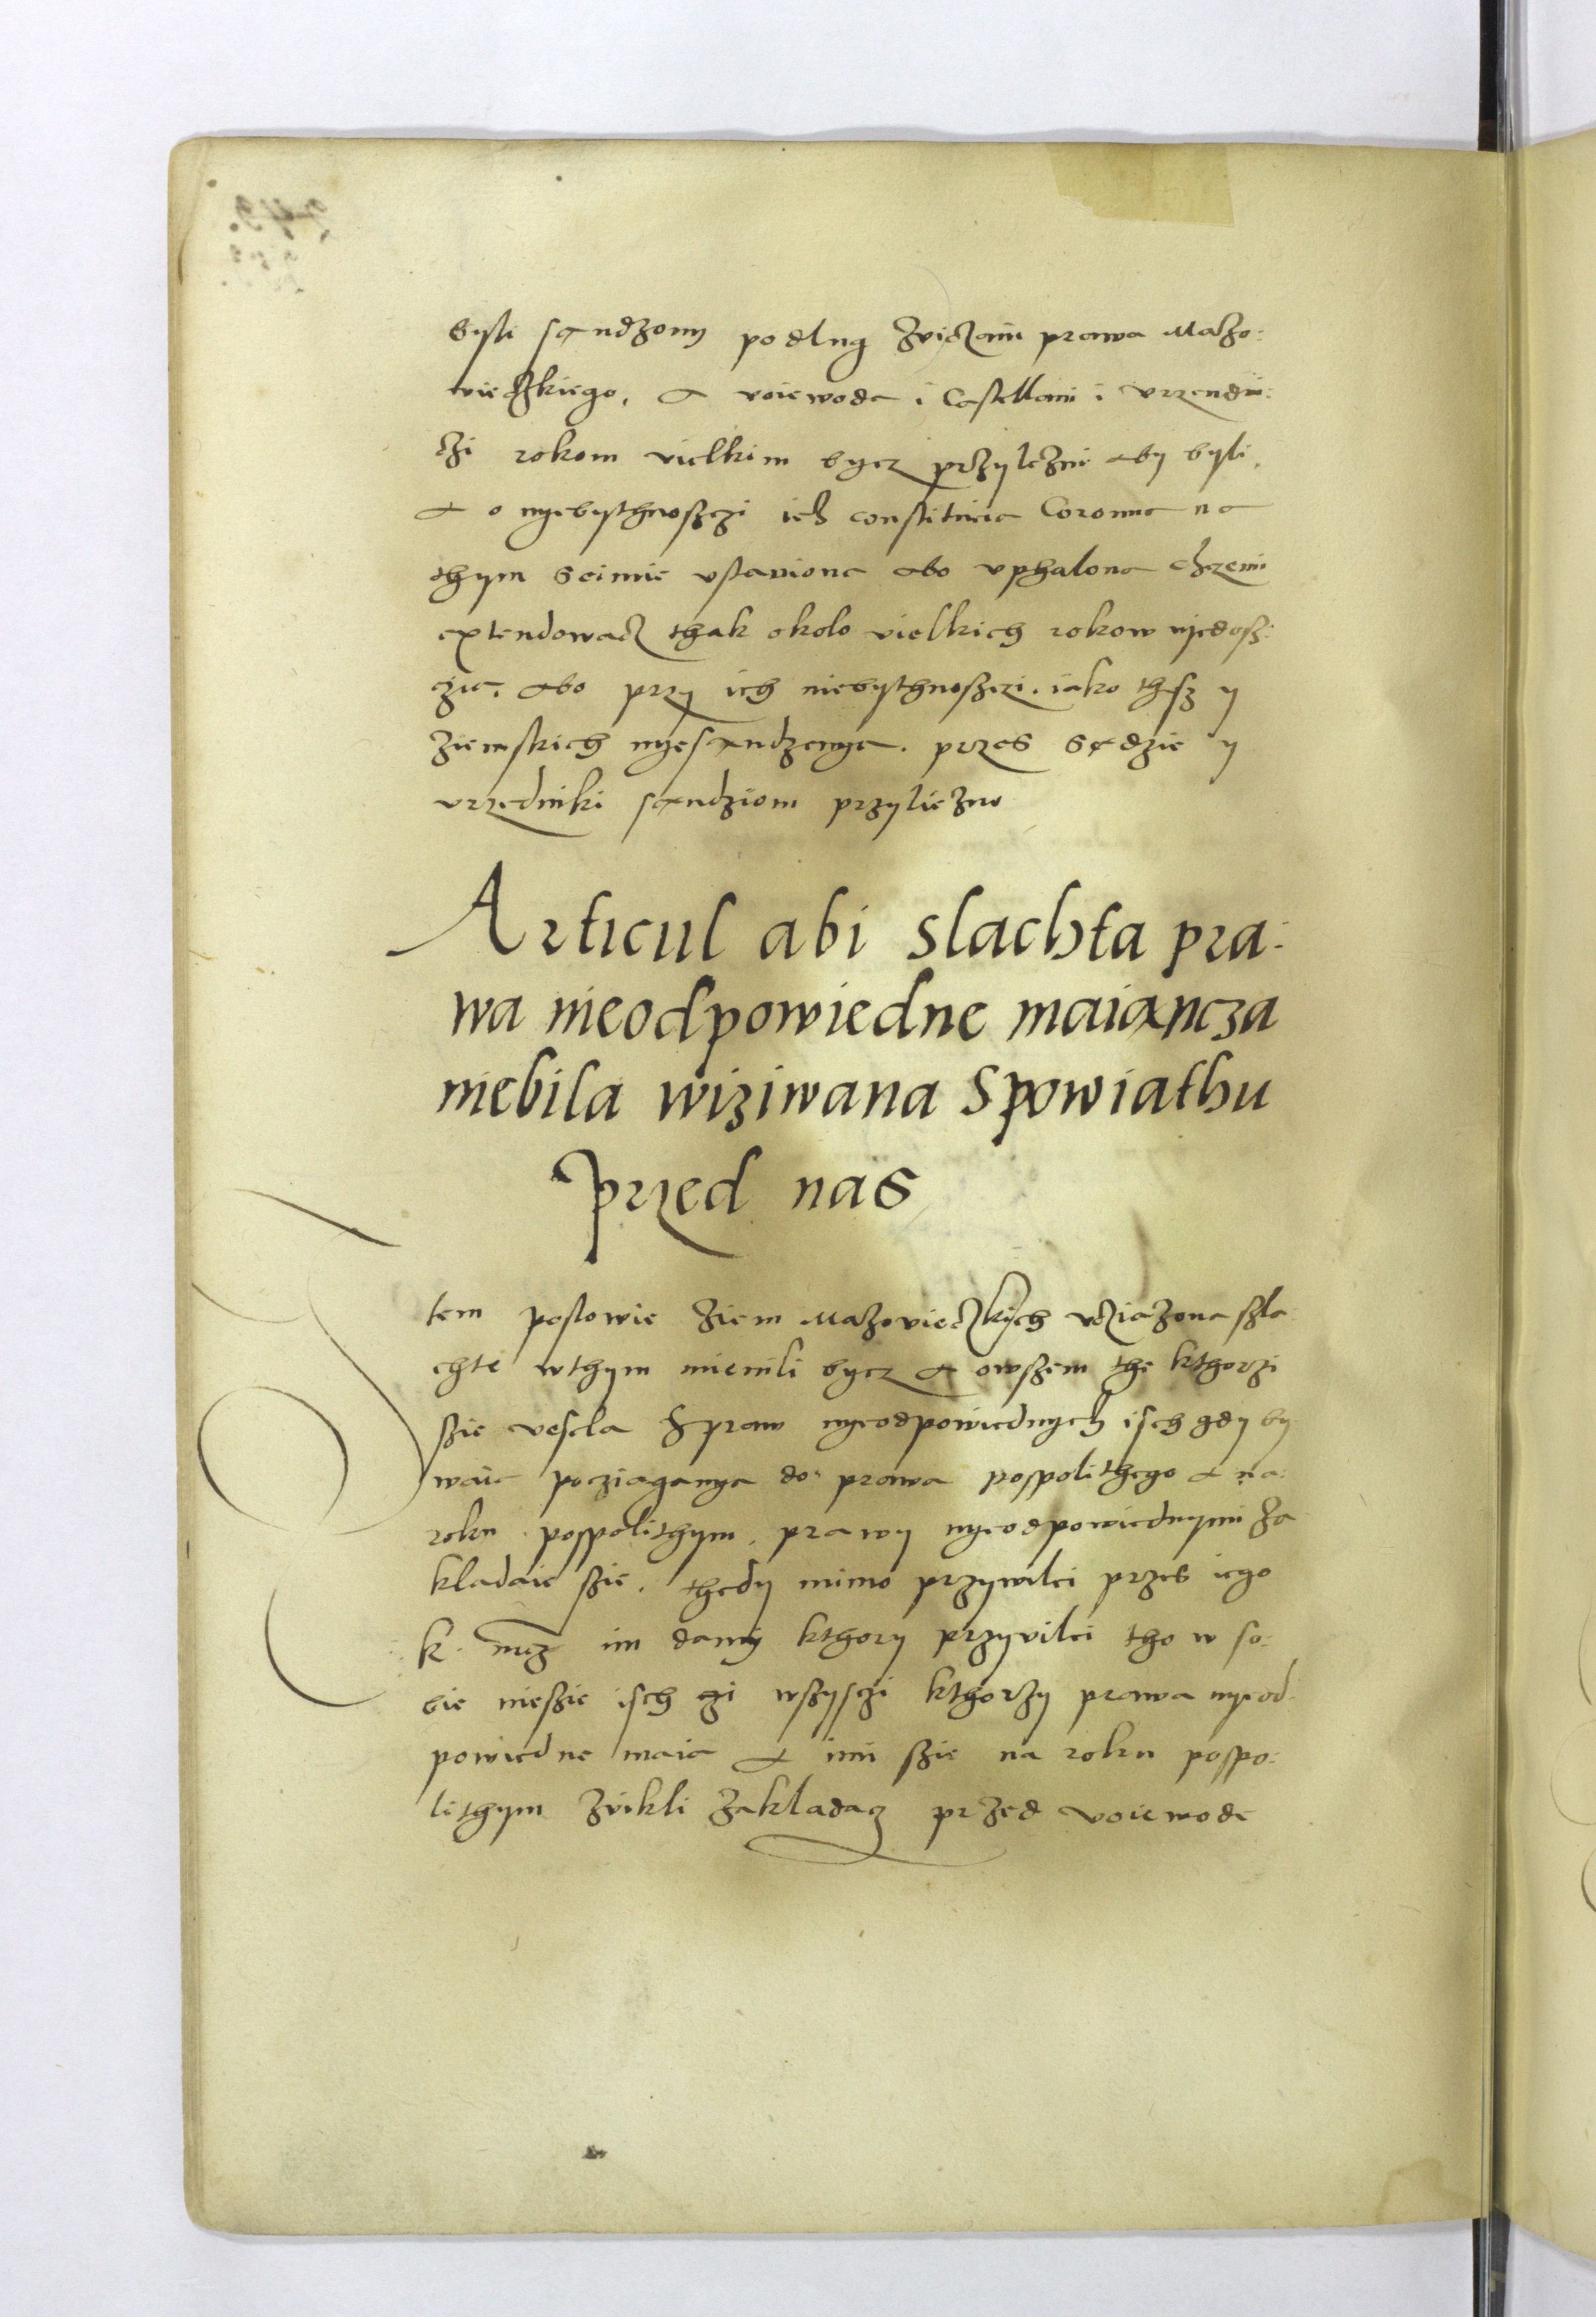 byli sandzony podlug zviczaiu prawa Mazo:
vieczkiego, a voiewoda i Castellani i vrzendni:
czi rokom vielkim bycz przylezni aby byli,
a o nyebythnosczi ich constitucia Coronna na
thym Seimie vstaviona abo vphalona chczemi
extendowacz thak okolo vielkich rokow nyedosz:
czia, abo przy ich niebythnoszczi. iako thesz y
ziemskich nyesandzenya. przes Sedzie y
vrzedniki sandziom przyliezno
Articul abi slachta pra:
wa nieodpowiedne maiancza
niebila wiziwana Spowiathu
przed nas
Item poslowie ziem Mazovieczkich vcziazona szla
chte wthym mienili bycz a owszem the kthorzi
szie vesela s praw nyeodpowiednych isch gdy by
waia pocziaganya do prawa pospolithego a na
roku pospolithym. prawy nyeodpowiednymi za
kladaie szie. thedy mimo przywilei przes iego
k. mcz im dany kthory przyvilei tho w so:
bie niesie isch czi wszysczi kthorzy prawa nyeod
powiedne maia a imi szie na roku pospo:
lithym zvikli zakladacz przed voiewode